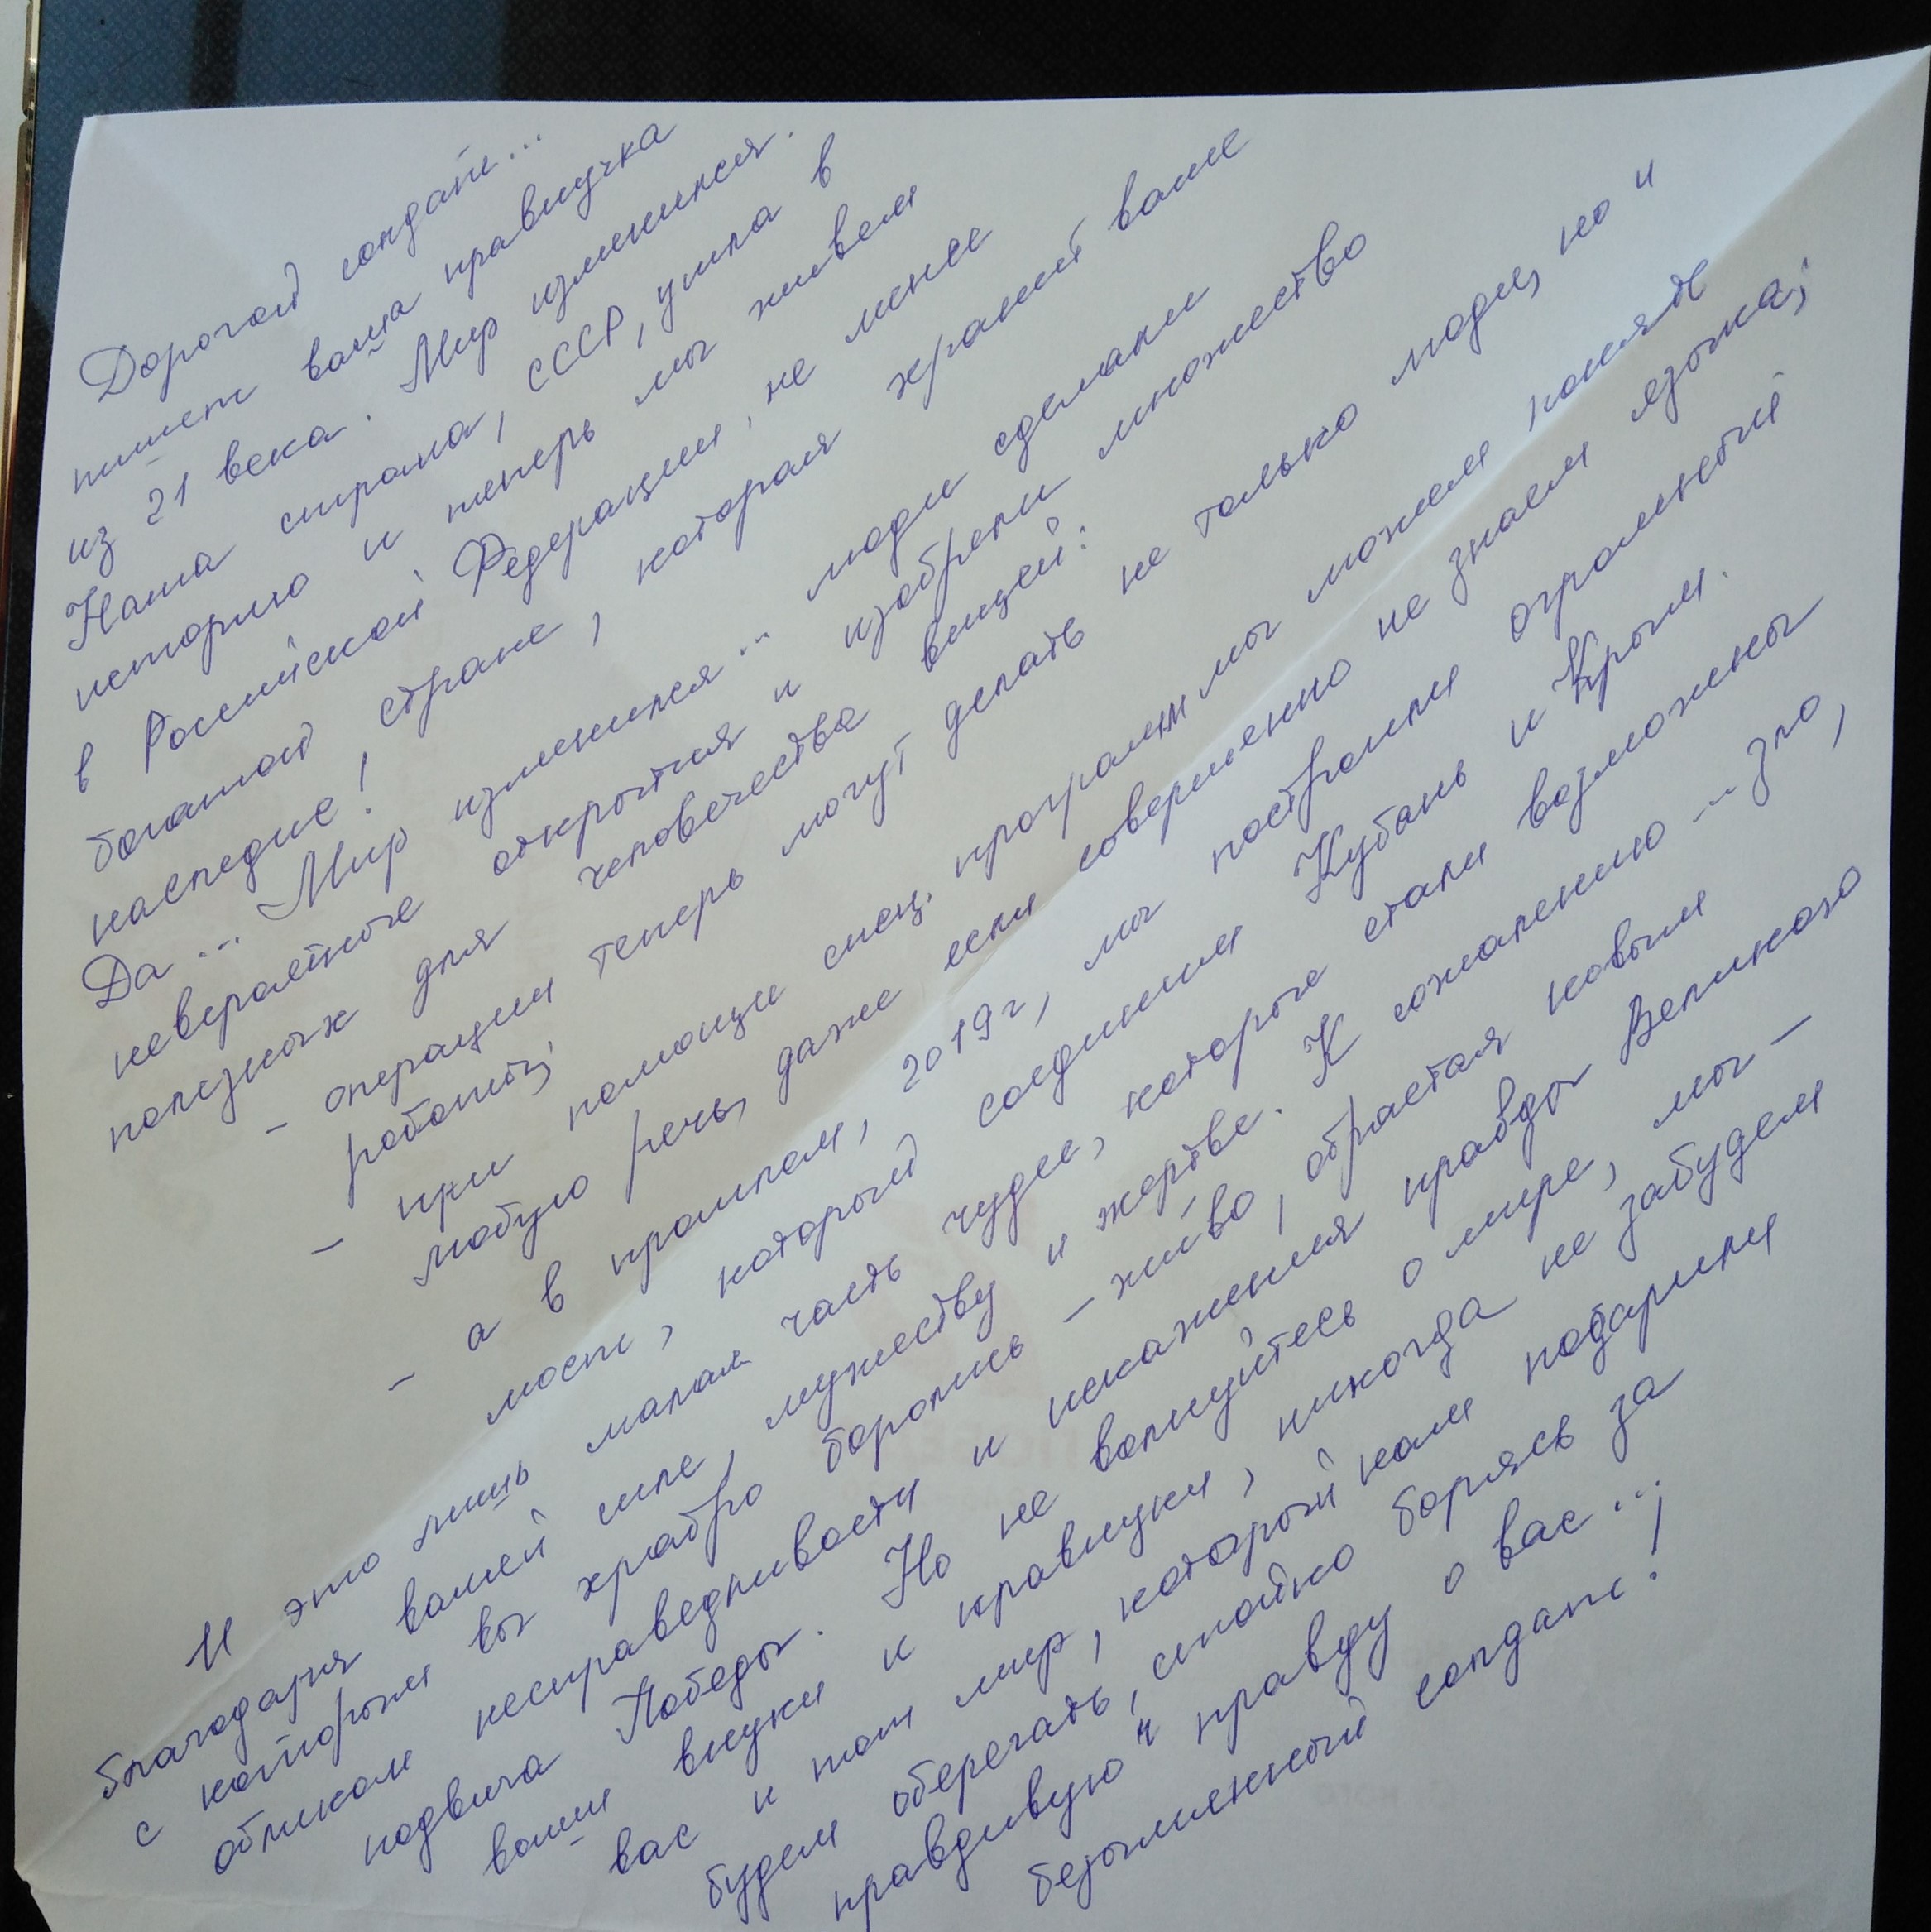 Дорогой солдат...
пишет ваша правнучка
из 21 века. Мир изменился.
Наша страна, СССР, ушла в
историю и теперь мы живем
в Российской Федерации, не менее
богатой стране, которая хранит ваше
наследие!
Да... Мир изменился... люди сделали
невероятные открытия и изобрели множество
полезных для человечества вещей:
- операции теперь могут делать не только люди, но и
роботы;
- при помощи спец. программ мы можем понять
любую речь, даже если совершенно не знаем языка;
- а в прошлом, 2019г, мы построили огромный
мост, который соединил Кубань и Крым.
И это лишь малая часть чудес, которые стали возможны
благодаря вашей силе, мужеству и жертве. К сожалению... зло,
с которым вы храбро боролись - живо, обрастая новым
обликом несправедливости и искажения правды Великого
подвига Победы. Но не волнуйтесь о мире, мы -
ваши внуки и правнуки, никогда не забудем
вас и тот мир, который нам подарили
будем оберегать, стойко борясь за
правдивую правду о вас...,
безымянный солдат!